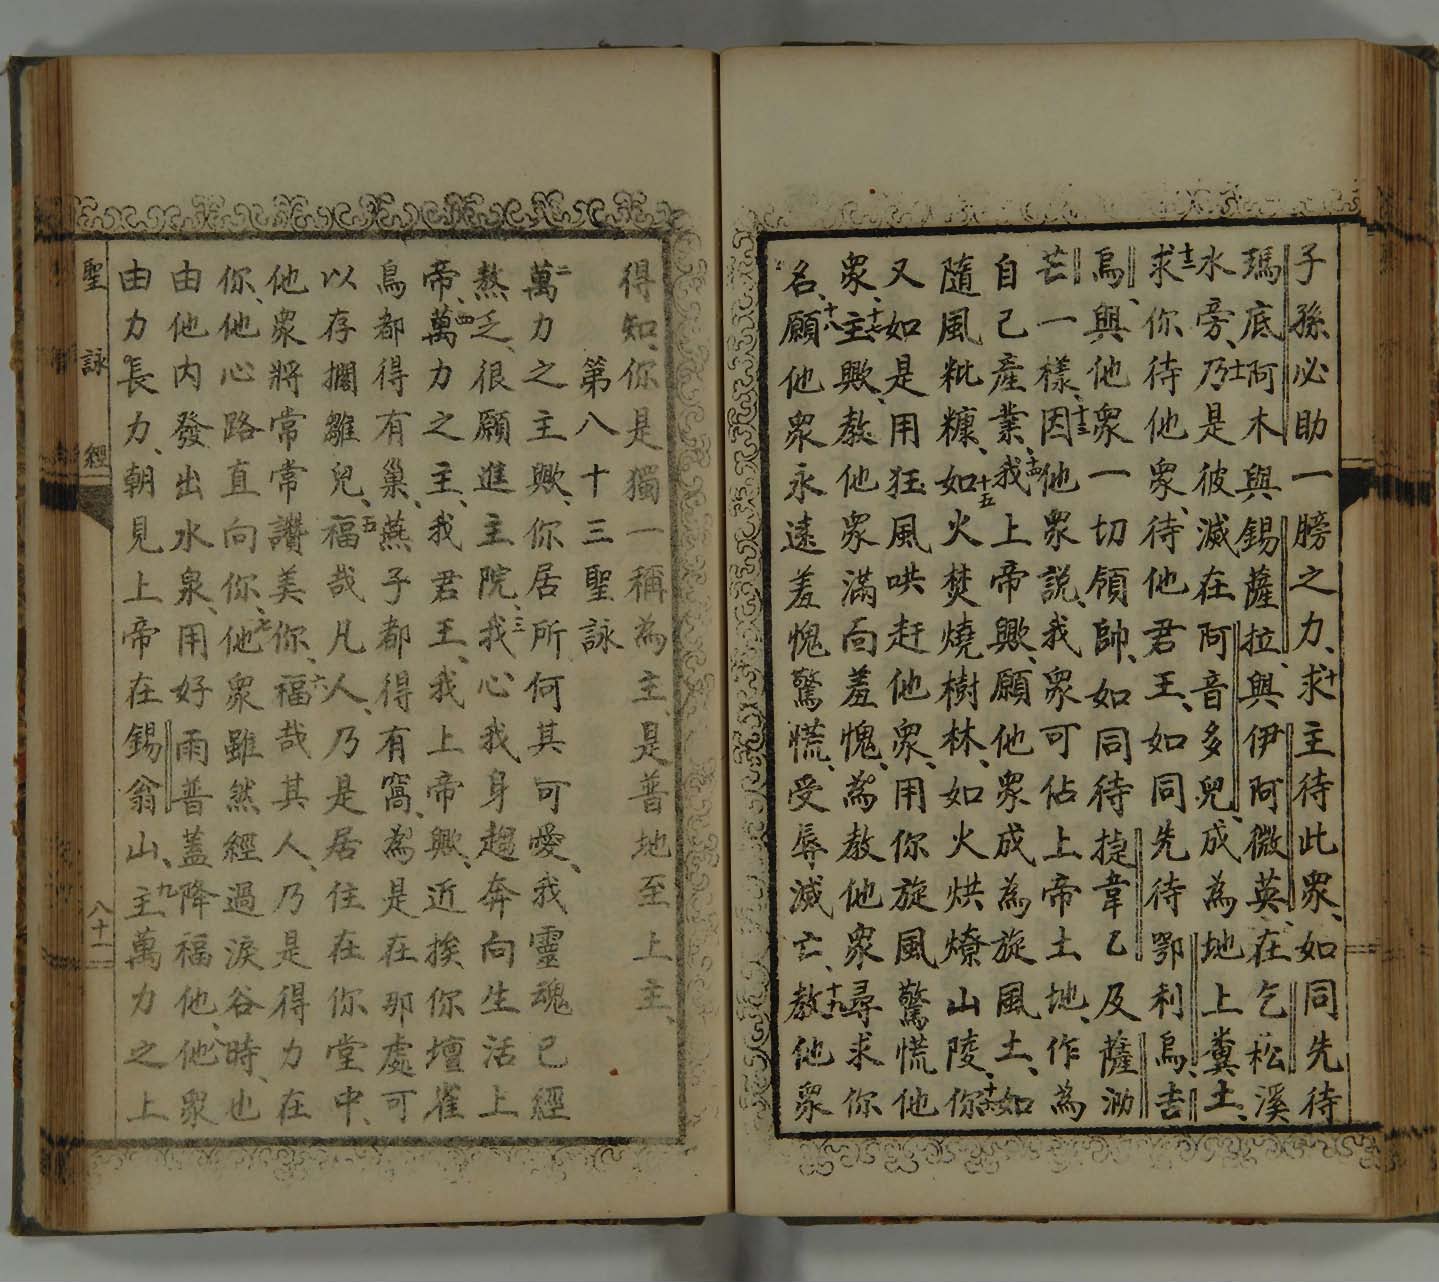 子孫必助一膀之力、十求主待此衆、如同先待
瑪底阿木與錫薩拉、與伊阿微英、在乞松溪
水旁、十一乃是彼滅在阿音多兒、成為地上糞土、
十二求你待他衆、待他君王、如同先待鄂利烏、吉
烏、與他衆一切領帥、如同待捷韋乙及薩泐
芒一樣、十三因他衆說、我衆可佔上帝土地、作為
自己產業、十四我上帝歟、願他衆成為旋風土、如
隨風粃糠、十五如火焚燒樹林、如火烘燎山陵、十六你
又如是用狂風哄赶他衆、用你旋風驚慌他
衆、十七主歟、教他衆滿面羞愧、為教他衆尋求你
名、十八願他衆永遠羞愧驚慌、受辱滅亡、十九教他衆
得知、你是獨一稱為主、是普地至上主、
第八十三聖詠
二萬力之主歟、你居所何其可愛、我靈魂已經
熬乏、很願進主院、三我心我身趨奔向生活上
帝、四萬力之主、我君王、我上帝歟、近挨你壇雀
鳥都得有巢、燕子都得有窩、為是在那處可
以存擱雛兒、五福哉凡人、乃是居住在你堂中、
他衆將常常讚美你、六福哉其人、乃是得力在
你、他心路直向你、七他衆雖然經過淚谷時、也
由他內發出水泉、用好雨普蓋降福他、八他衆
由力長力、朝見上帝在錫翁山、九主萬力之上
聖詠經
八十二